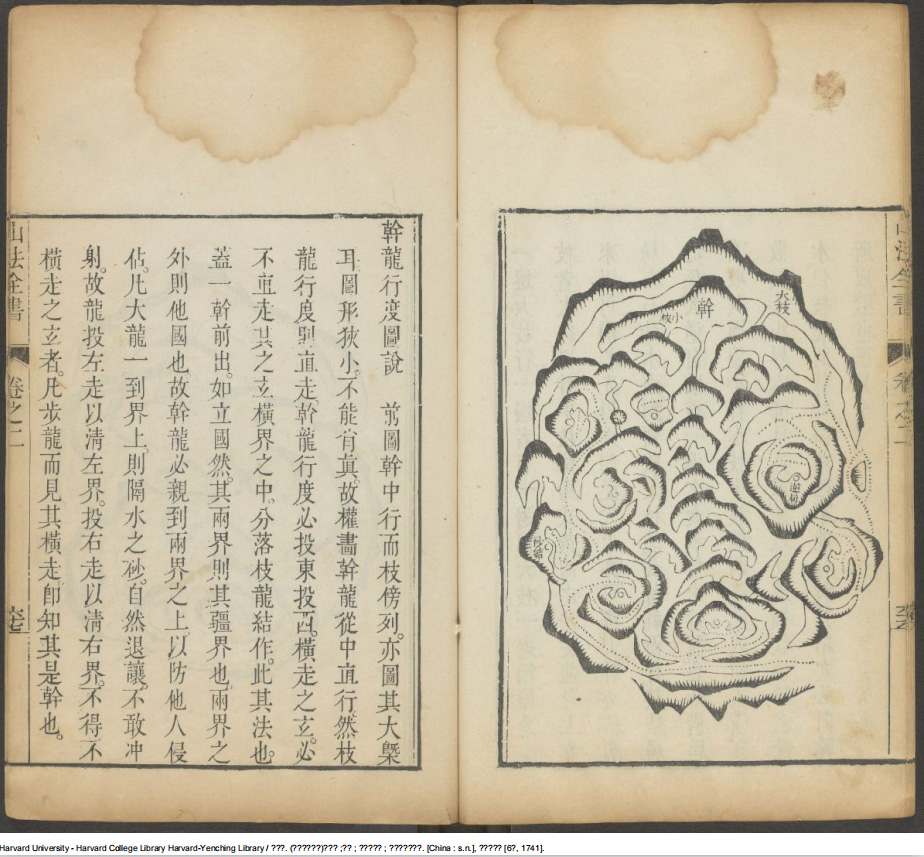 山法全書
大枝
幹
小枝
幹龍行度圖說 前圖幹中行而枝傍列。亦圖其大槩
耳圖形狹小。不能肖真。故權畫幹龍從中直行然枝
龍行度則直走幹龍行度必投東投西。橫走之玄。必
不直走其之玄橫界之中。分落枝龍結作。此其法也
蓋一幹前出。如立國然。其兩界則其疆界也。兩界之
外則他國也故幹龍必親到兩界之上。以防他人侵
佔。凡大龍一到界上。則隔水之砂。自然退讓。不敢冲
射。故龍投左走以清左界。投右走以清右界。不得不
橫走之玄者。凡步龍而見其橫走。即知其是幹也。
山法全書
卷之二
Harvard University - Harvard College Library Harvard-Yenching Library / ???. (??????)??? ;?? ; ????? ; ???????. [China : s.n.], ????? [6?, 1741].